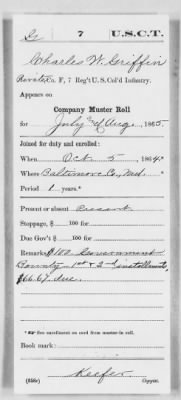 G | 7 | U.S.C.T.
Charles W. Griffin
Private, Co. F, 7 Reg't U.S. Col'd Infantry.
Appears on
Company Muster Roll
for July & Aug, 1865.
Joined for duty and enrolled:
When Oct 5, 1864.*
Where Baltimore Co, Md.
Period 1 years.*
Present or absent Present
Stoppage, $ 100 for
Due Gov't $ 100 for
Remarks: $100 Government
Bounty 1st & 2d installments
$66.67 due.
* See enrollment on card from muster-in roll.
Book mark:
Keefer
(358c) Copyist.